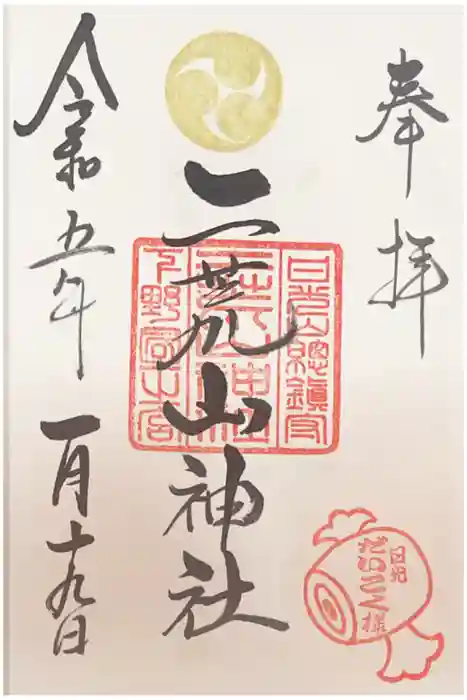 奉拝
日光総鎮守
二荒山神社
下野国一之宮
二荒山神社
令和五年一月十九日
日光
だいこく様